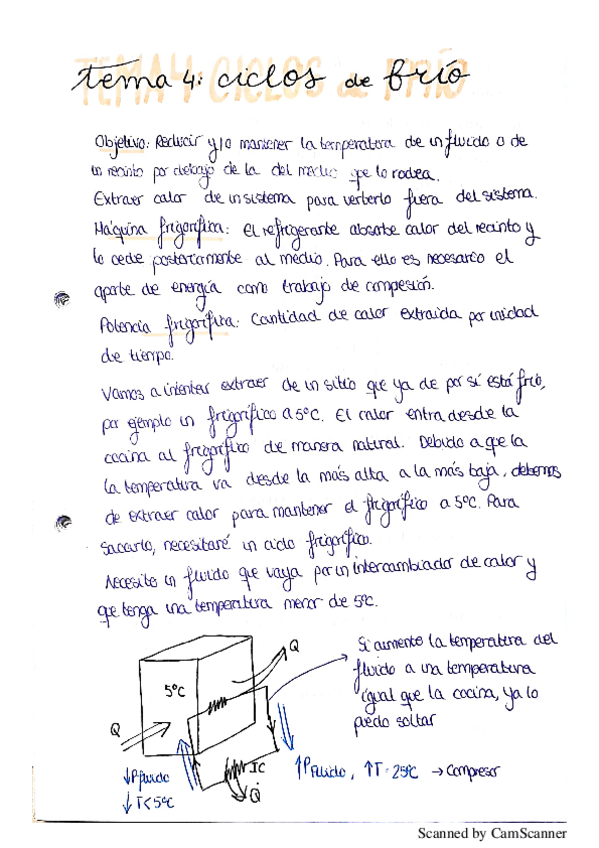 tema 4: ciclos de frío
Objetivo: Reducir y/o mantener la temperatura de un fluido o de
un recinto por debajo de la del medio que lo rodea.
Extraer calor de un sistema para verterlo fuera del sistema.
Máquina frigorífica: El refrigerante absorbe calor del recinto y
lo cede posteriormente al medio. Para ello es necesario el
aporte de energía como trabajo de compresión.
Potencia frigorífica: Cantidad de calor extraida por unidad
de tiempo.
Vamos a intentar extraer de un sitio que ya de por sí está frío,
por ejemplo un frigorífico a 5°C. El calor entra desde la
cocina al frigorífico de manera natural. Debido a que la
la temperatura va desde la más alta a la más baja, debemos
de extraer calor para mantener el frigorífico a 5°C. Para
sacarlo, necesitaré un ciclo frigorífico.
Necesito un fluido que vaya por un intercambiador de calor y
que tenga una temperatura menor de 5°C.
Si aumento la temperatura del
fluido a una temperatura
igual que la cocina, ya lo
puedo soltar
Q
5°C
Q
IC
Q
↓P fluido
↓T<5°C
↑P Fluido, ↑T · 25°C → Compresor
Scanned by CamScanner